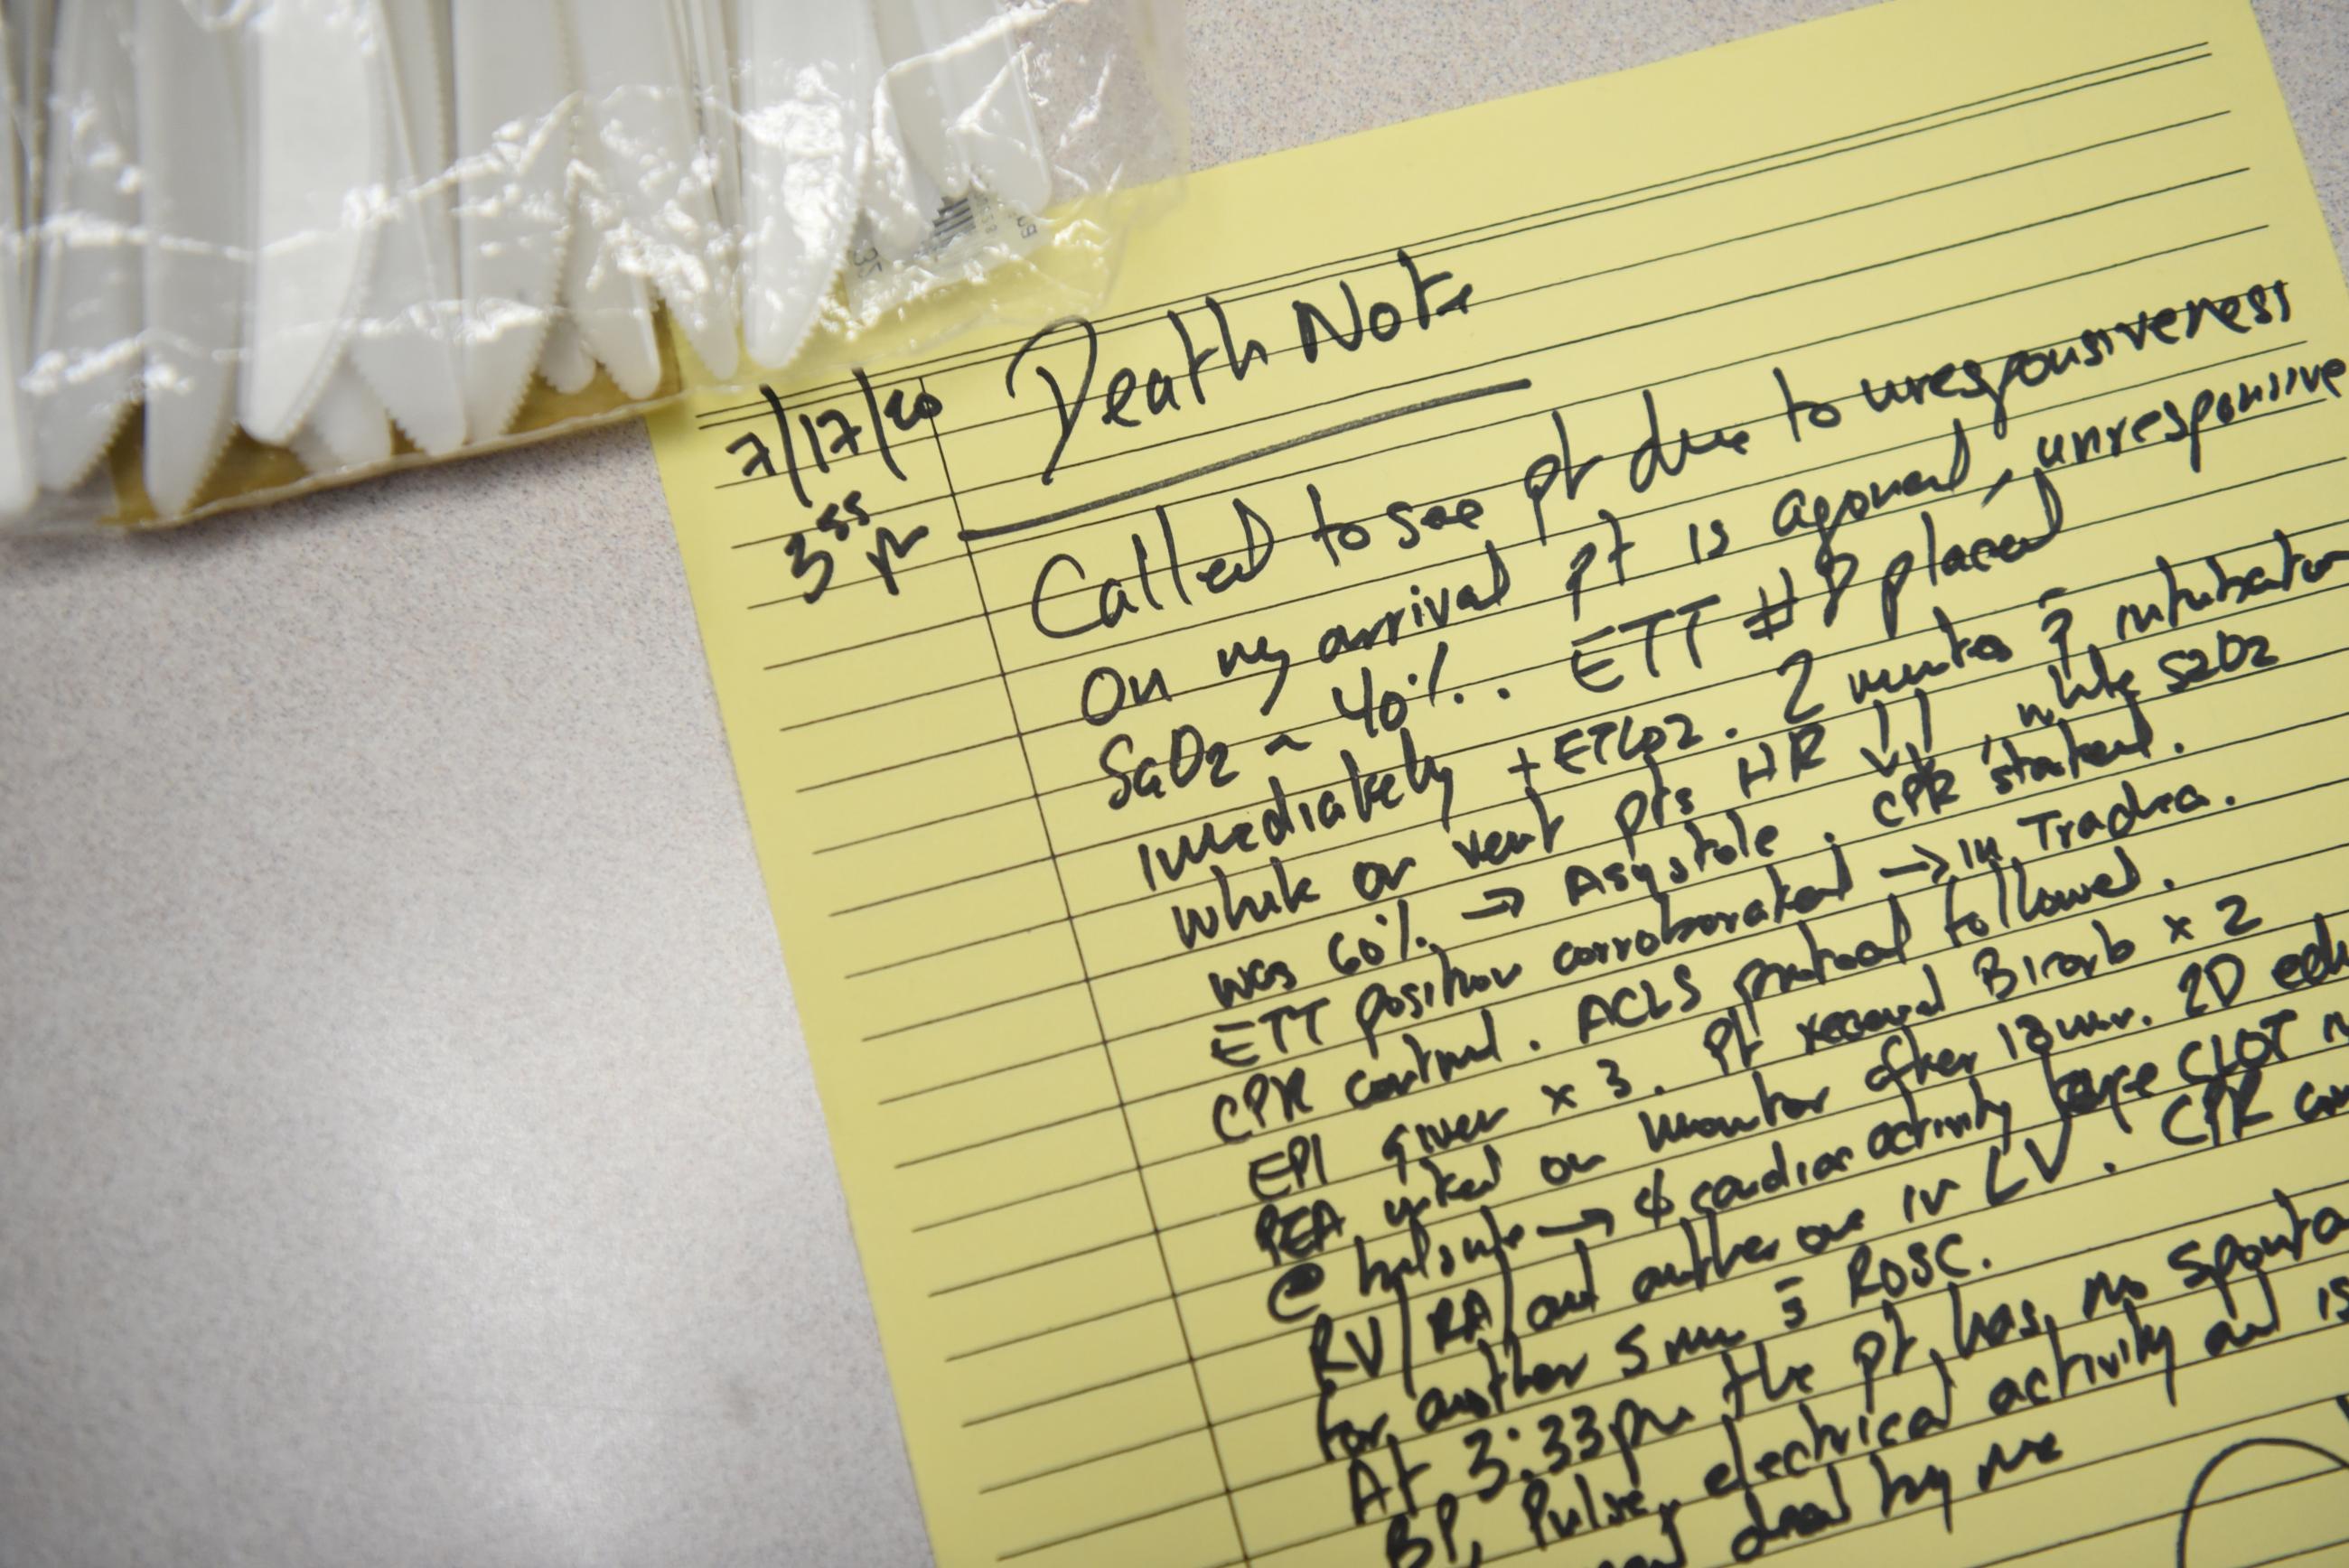 7/17/20 Death Note
3 55 pm
Called to see pt due to unresponsiveness
On my arrival pt is agonal, unresponsive
SaO2 ~ 40%. ETT #8 placed
immediately + ETCO2. 2 minutes intubation
while on vent pts HR ↓↓, while SaO2
was 60% → Asystole. CPR started.
ETT position corroborated → in Trachea.
CPR continued. ACLS protocol followed.
EPI given x 3. Pt received Bicarb x 2
PEA noted on monitor after 18 min. 2D echo
@ bedside → ϕ cardiac activity large CLOT in
RV/RA/and another one in LV. CPR con
for another 5 min s̄ ROSC.
At 3:33pm the pt has no sponta
BP, Pulse, electrical activity and is
dead by me